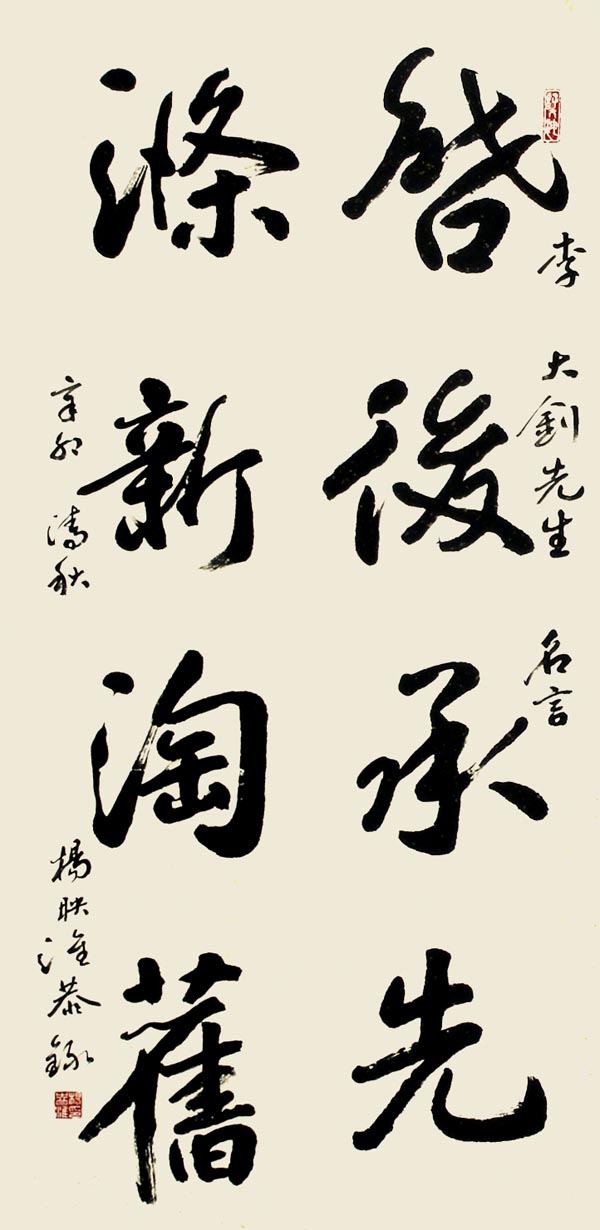 李大釗先生名言
啓後承先
滌新淘舊
辛卯清秋 楊映淮恭錄